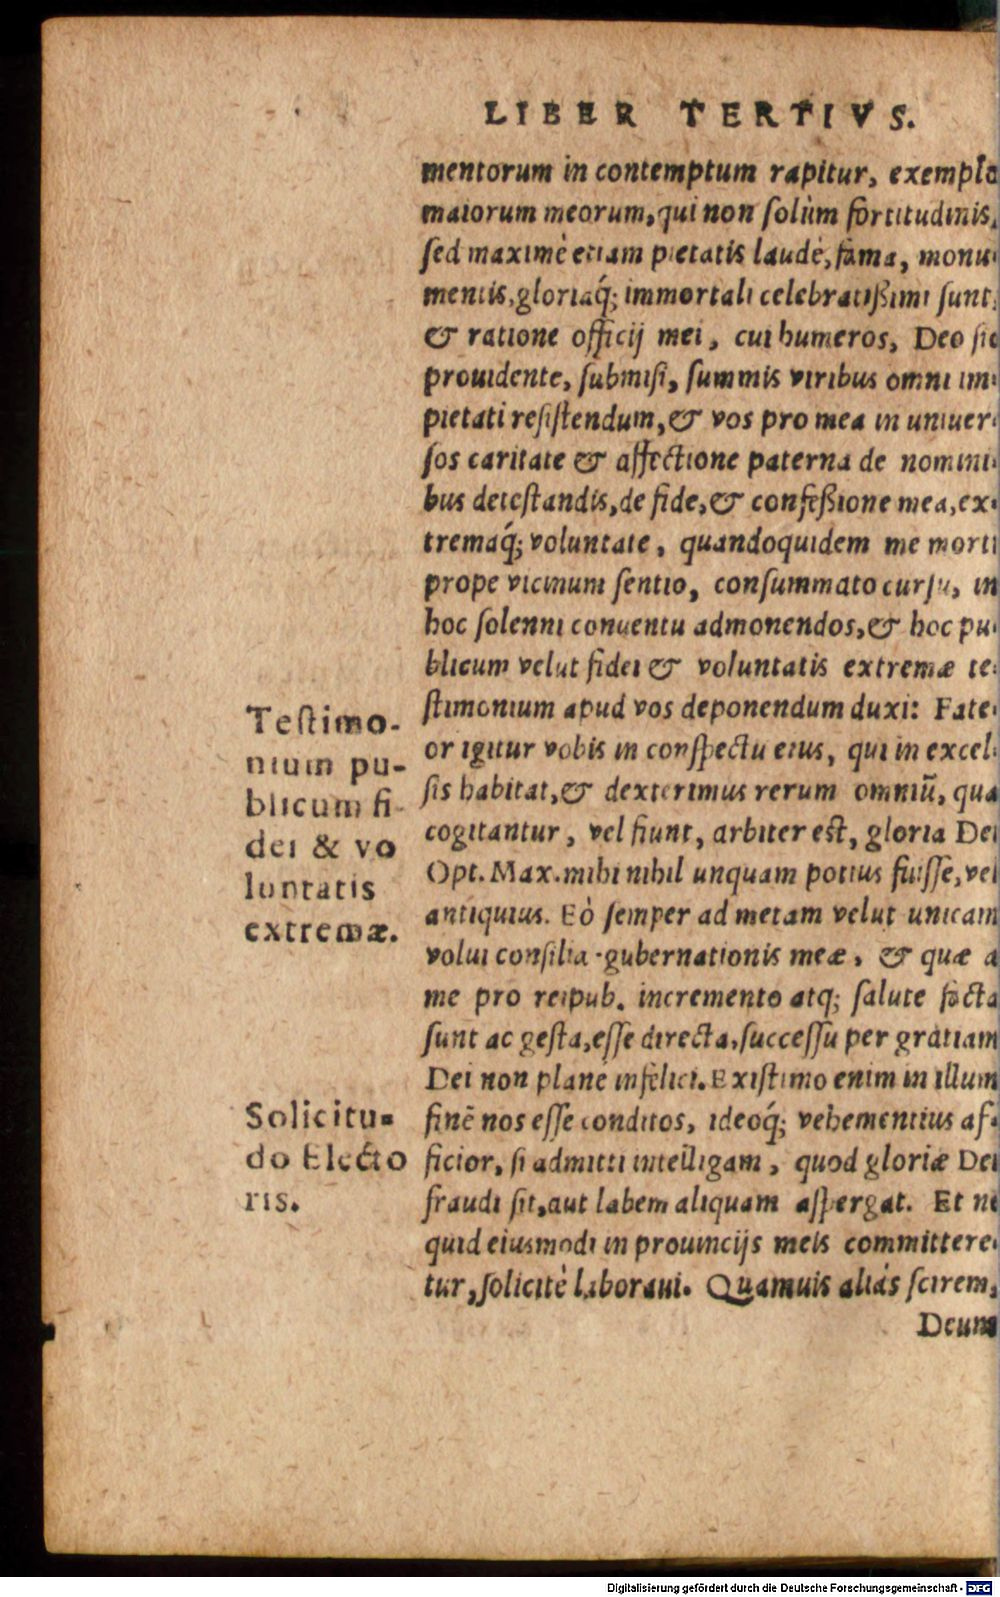 LIBER TERTIVS.
mentorum in contemptum rapitur, exempla
maiorum meorum, qui non solùm fortitudinis,
sed maximè etiam pietatis laude, fama, monu-
mentis, gloriaq́; immortali celebratißimi sunt,
& ratione officij mei, cui humeros, Deo sic
prouidente, submisi, summis viribus omni im-
pietati resistendum, & vos pro mea in uniuer-
sos caritate & affectione paterna de nomini-
bus detestandis, de fide, & confeßione mea, ex-
tremaq́; voluntate, quandoquidem me morti
prope vicinum sentio, consummato cursu, in
hoc solenni conuentu admonendos, & hoc pu-
blicum velut fidei & voluntatis extremæ te-
stimonium apud vos deponendum duxi: Fate-
or igitur vobis in conspectu eius, qui in excel-
sis habitat, & dexterimus rerum omniū, quæ
cogitantur, vel fiunt, arbiter est, gloria Dei
Opt. Max. mihi nihil unquam potius fuisse, vel
antiquius. Eò semper ad metam velut unicam
volui consilia gubernationis meæ, & quæ a
me pro reipub. incremento atq; salute facta
sunt ac gesta, esse directa, successu per gratiam
Dei non planè infelici. Existimo enim in illum
finē nos esse conditos, ideoq́; vehementius af-
ficior, si admitti intelligam, quod gloriæ Dei
fraudi sit, aut labem aliquam aspergat. Et ne
quid eiusmodi in prouincijs meis committere-
tur, solicitè laboraui. Quamuis aliàs scirem,
Deum
Testimo-
nium pu-
blicum fi-
dei & vo
luntatis
extremæ.
Solicitu-
do Electo
ris.
Digitalisierung gefördert durch die Deutsche Forschungsgemeinschaft - DFG